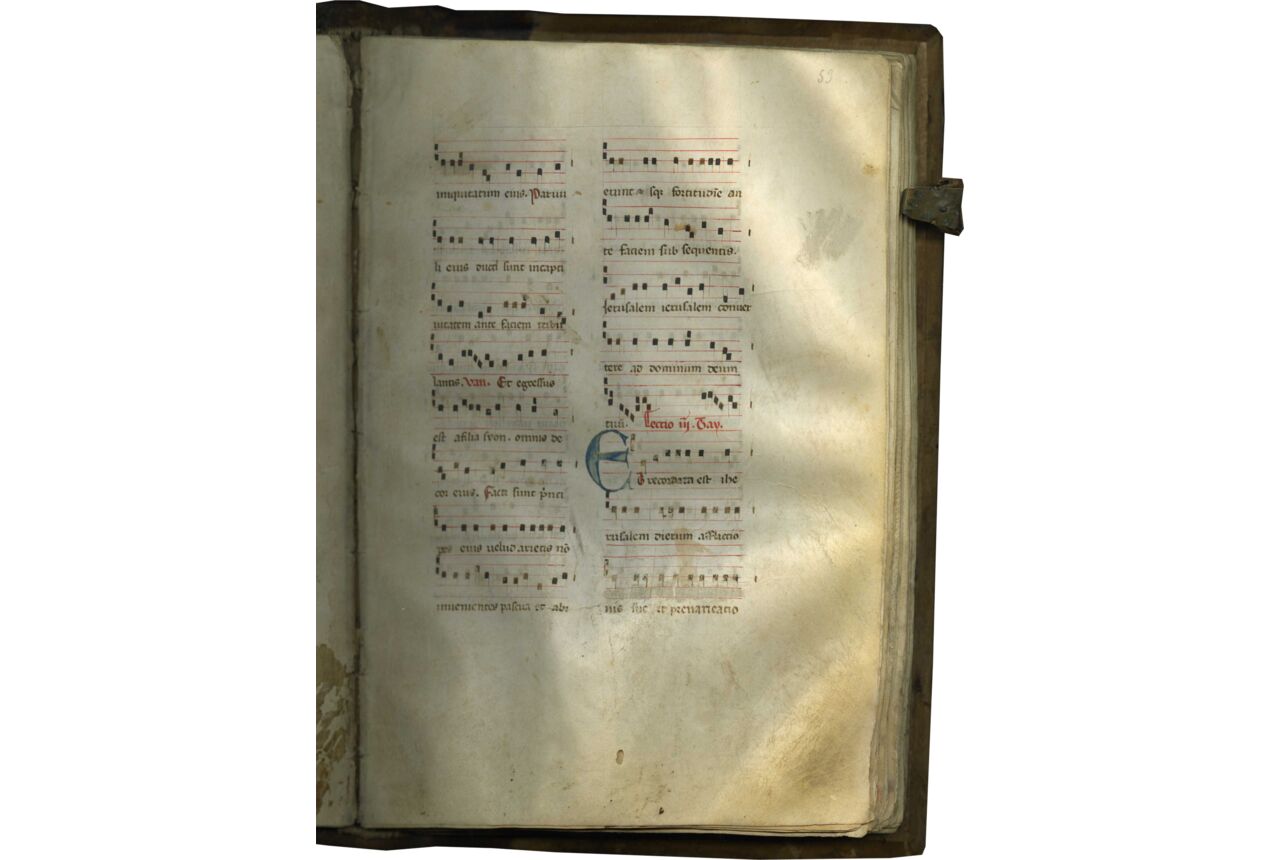 53
iniquitatum eius. Paruu
li eius ducti sunt incapti
uitatem ante faciem tribu
lantis. Vau. Et egressus
est afilia syon. omnis de
cor eius. Facti sunt p̄nci
pes eius uelud arietes nō
inuenientes pascua et abi
erunt absq; fortitudīe an
te faciem sub sequentis.
Jerusalem ierusalem conuer
tere ad dominum deum
tuū. Lectio iij. Zay.
Et recordata est ihe
rusalem dierum afflictio
nis sue et preuaricatio